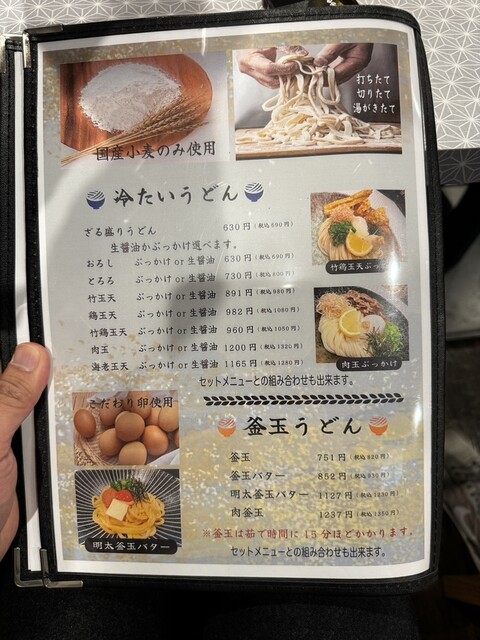 打ちたて
切りたて
湯がきたて
国産小麦のみ使用
冷たいうどん
ざる盛りうどん 630円(税込690円)
生醤油かぶっかけ選べます。
おろし ぶっかけ or 生醤油 630円(税込690円)
とろろ ぶっかけ or 生醤油 730円(税込800円)
竹玉天 ぶっかけ or 生醤油 891円(税込980円)
鶏玉天 ぶっかけ or 生醤油 982円(税込1080円)
竹鶏玉天 ぶっかけ or 生醤油 960円(税込1050円)
肉玉 ぶっかけ or 生醤油 1200円(税込1320円)
海老玉天 ぶっかけ or 生醤油 1165円(税込1280円)
セットメニューとの組み合わせも出来ます。
竹鶏玉天ぶっかけ
肉玉ぶっかけ
こだわり卵使用
明太釜玉バター
釜玉うどん
釜玉 751円(税込820円)
釜玉バター 852円(税込930円)
明太釜玉バター 1127円(税込1230円)
肉釜玉 1237円(税込1350円)
※釜玉は茹で時間に15分ほどかかります。
セットメニューとの組み合わせも出来ます。